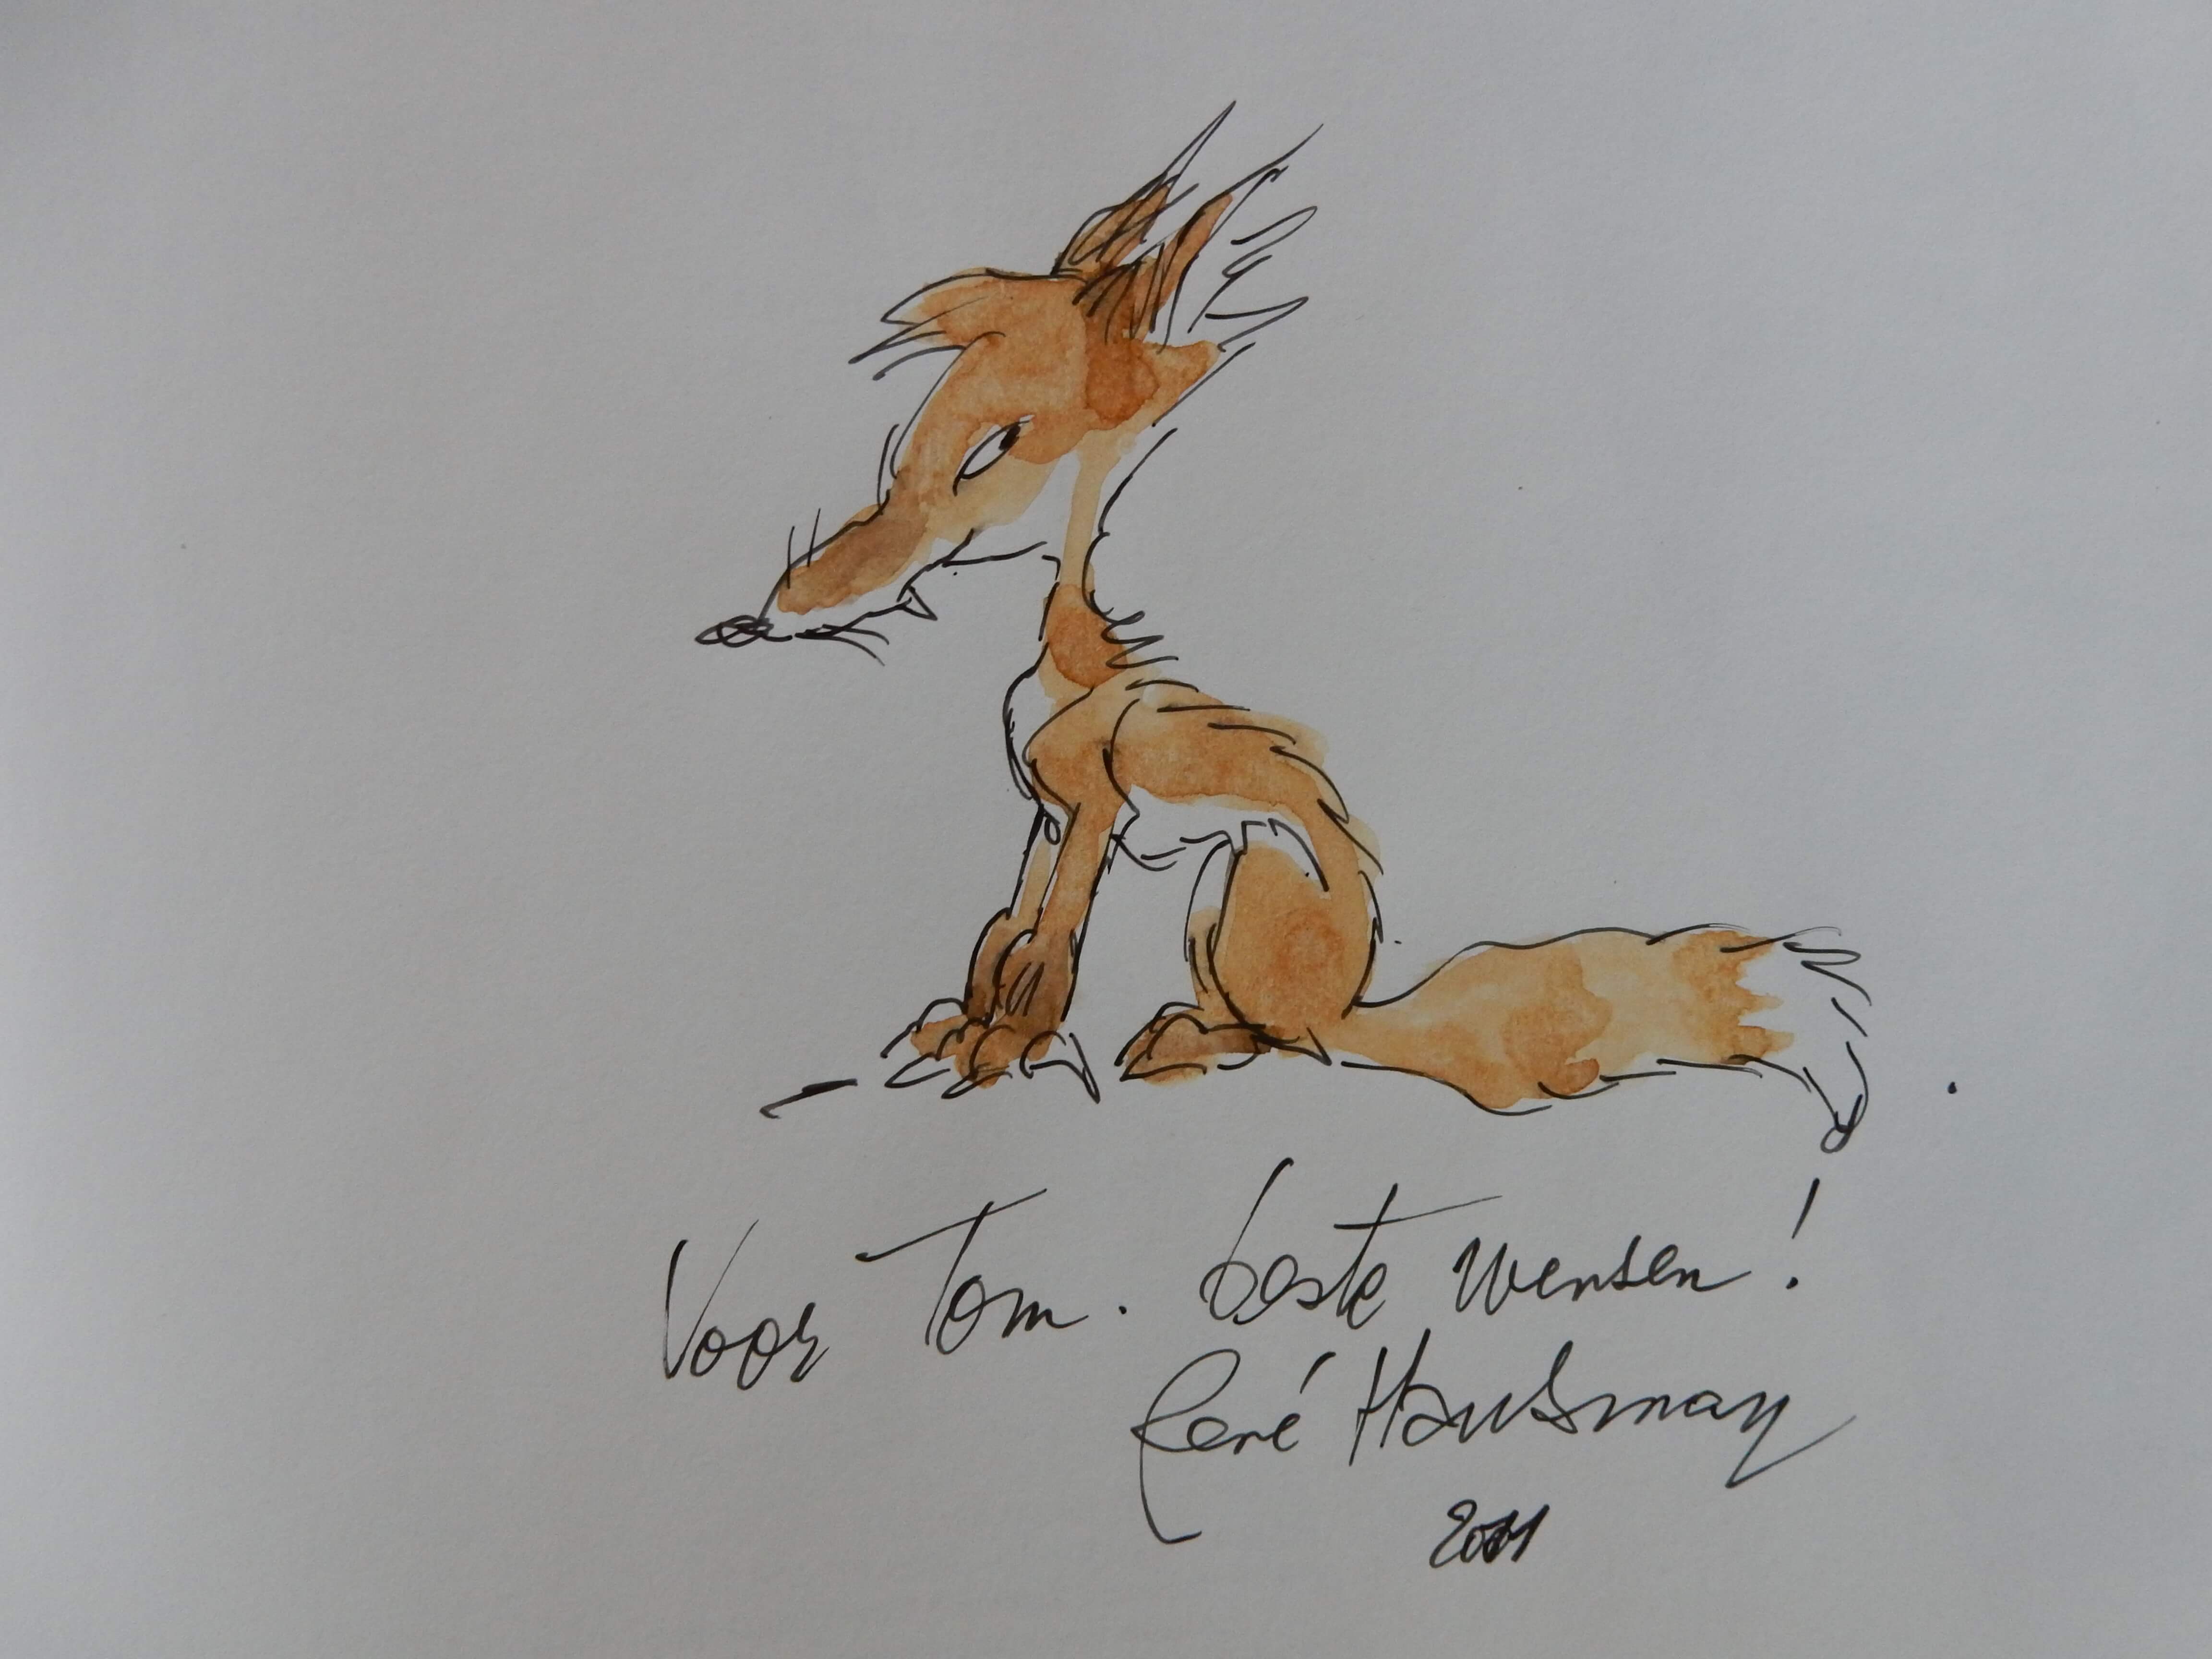 Voor Tom. beste wensen!
René Hausman